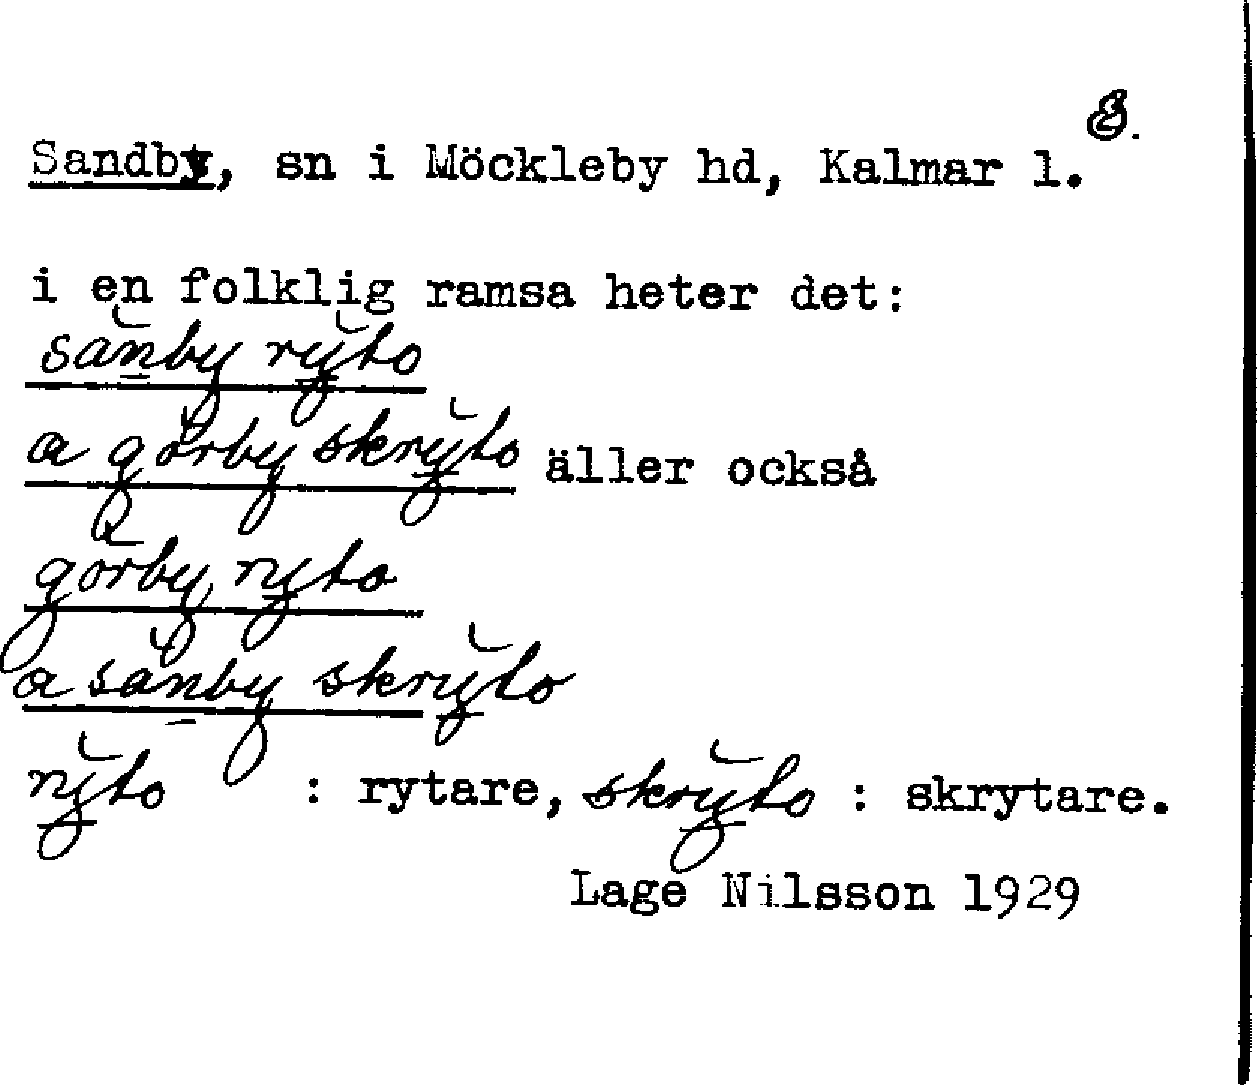 S.
Sandby, sn i Möckleby hd, Kalmar l.
i en folklig ramsa heter det:
sanby ryto
a görby skryto äller också
görby ryto
a sanby skryto
ryto : rytare, skryto : skrytare.
Lage Nilsson 1929